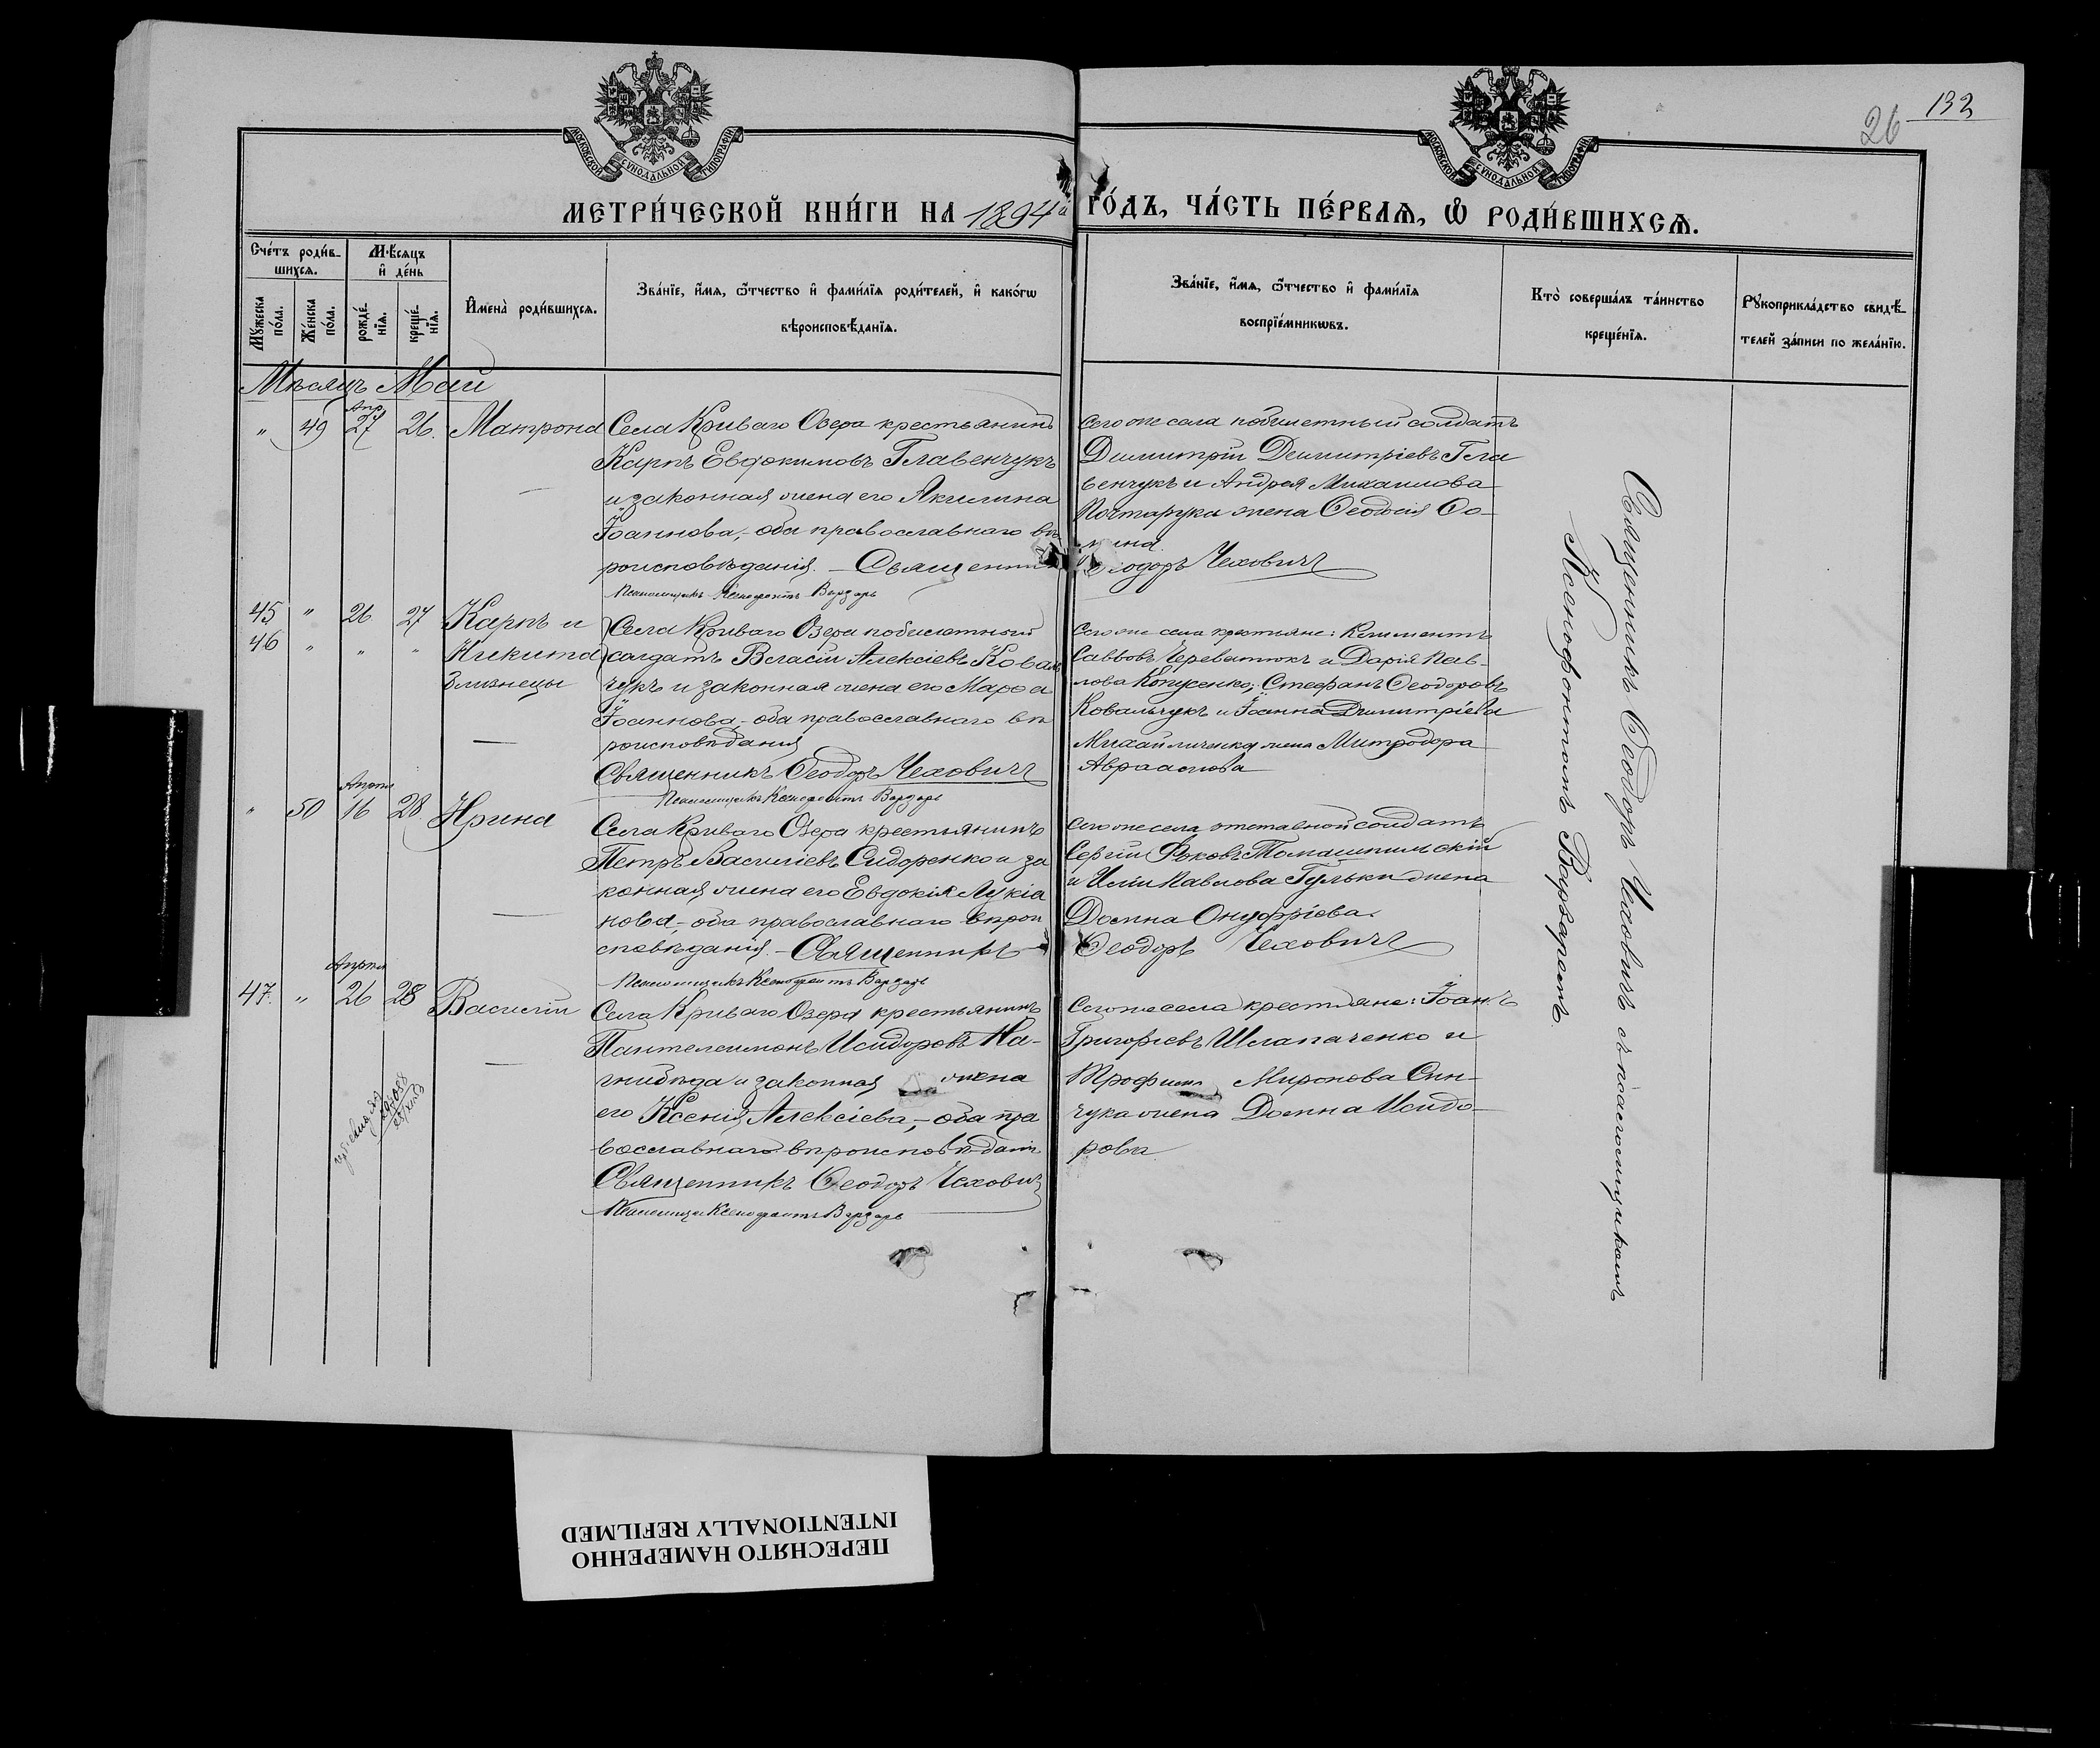 132
26
МОСКОВСКОЙ СѴНОДАЛЬНОЙ ТИПОГРАФІИ
МОСКОВСКОЙ СѴНОДАЛЬНОЙ ТИПОГРАФІИ
МЕТРИ́ЧЕСКОЙ КНИ́ГИ НА 1894й ГО́ДЪ, ЧА́СТЬ ПЕ́РВАѦ, Ѽ РОДИ́ВШИХСѦ.
Сче́тъ роди́в-
шихсѧ.
Мѣ́сѧцъ
и҆ де́нь
Мꙋ́жеска
по́ла.
Же́нска
по́ла.
рожде́-
нїѧ.
креще́-
нїѧ.
И҆мена̀ роди́вшихсѧ.
Зва́нїе, и҆́мѧ, ѿ́чество и҆ фами́лїѧ роди́телей, и҆ како́гѡ
вѣроисповѣ́данїѧ.
Зва́нїе, и҆́мѧ, ѿ́чество и҆ фами́лїѧ
воспрїе́мникѡвъ.
Кто̀ соверша́лъ та́инство
креще́нїѧ.
Рꙋкоприкла́дство свидѣ́-
телей за́писи по жела́нїю.
Мѣсяцъ Май
" 49 Апр. 27 26. Матрона
Села Криваго Озера крестьянинъ
Карпъ Евдокимовъ Главенчукъ
и законная жена его Акилина
Іоаннова, - оба православнаго вѣ
роисповѣданія. - Священникъ
Псаломщикъ Ксенофонтъ Варзарь
сего же села побилетный солдатъ
Димитрій Димитріевъ Гла
венчукъ и Андрея Михаилова
жена Ѳеодосія Ѳо-
мина.
Ѳеодоръ Чеховичъ
45 " 26 27 Карпъ и
46 " " " Никита
близнецы
Села Криваго Озера побилетный
солдатъ Власій Алексіевъ Коваль
чукъ и законная жена его Марѳа
Іоаннова, - оба православнаго вѣ
роисповѣданія
Священникъ Ѳеодоръ Чеховичъ
Псаломщикъ Ксенофонтъ Варзарь
Сего же села крестьяне: Климентъ
Саввовъ Череватюкъ и Дарія Пав-
лова; Стефанъ Ѳеодоровъ
Ковальчукъ и Іоанна Димитріева
Михайличенка жена Митродора
Авраамова
" 50 Апрѣля 16 28. Ирина
Села Криваго Озера крестьянинъ
Петръ Василіевъ Сидоренко и за
конная жена его Евдокія Лукіа
нова, - оба православнаго вѣрои
сповѣданія. - Священникъ
Псаломщикъ Ксенофонтъ Варзарь
Сего же села отставной солдатъ
Сергій Фоковъ Томашпильскій
и Иліи Павлова Гульки жена
Домна Онуфріева.
Ѳеодоръ Чеховичъ
47. " Апрѣля 26 28 Василій
Села Криваго Озера крестьянинъ
Пантелеимонъ Исидоровъ На-
гнибѣда и законная жена
его Ксенія Алексіева, - оба пра
вославнаго вѣроисповѣданія
Священникъ Ѳеодоръ Чеховичъ
Псаломщикъ Ксенофонтъ Варзарь
Сего же села крестьяне: Іоаннъ
Григоріевъ Шлапаченко и
Трофима Миронова
чука жена Домна Исидо-
рова
Священникъ Ѳеодоръ Чеховичъ съ псаломщикомъ
Ксенофонтомъ Варзаремъ.
ПЕРЕСНЯТО НАМЕРЕННО
INTENTIONALLY REFILMED